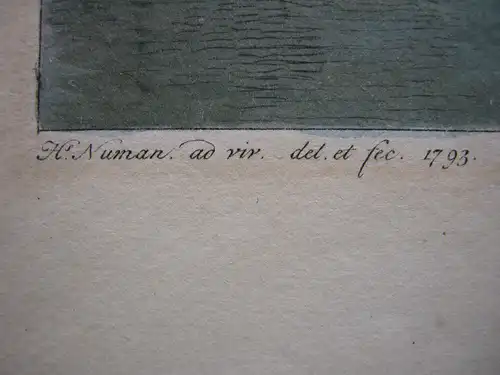 H. Numan. ad viv. del. et fec. 1793.